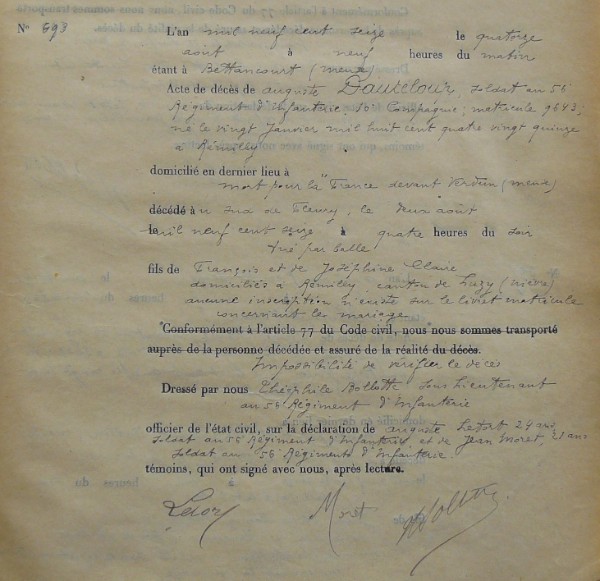 N° 693
L'an mil neuf cent seize le quatorze
août à neuf heures du matin
étant à Bettancourt (meuse)
Acte de décès de auguste Dauteloup, soldat au 56e
Régiment d'Infanterie 10e Compagnie; matricule 9643,
né le vingt Janvier mil huit cent quatre vingt quinze
à Rémilly
domicilié en dernier lieu à
mort pour la France devant Verdun (meuse)
décédé au sud de Fleury, le deux août
le mil neuf cent seize à quatre heures du soir
tué par balle
fils de François et de Joséphine Claire
domiciliés à Rémilly, canton de Luzy (nièvre)
aucune inscription n'existe sur le livret matricule
concernant le mariage.
"Conformément à l'article 77 du Code civil, nous nous sommes transporté
auprès de la personne décédée et assuré de la réalité du décès.
Impossibilité de vérifier le décès
Dressé par nous Théophile Bollotte sous Lieutenant
au 56e Régiment d'Infanterie
officier de l'état civil, sur la déclaration de auguste 24 ans
soldat au 56e Régiment d'Infanterie et de Jean Moret, 21 ans
soldat au 56e Régiment d'Infanterie
témoins, qui ont signé avec nous, après lecture.